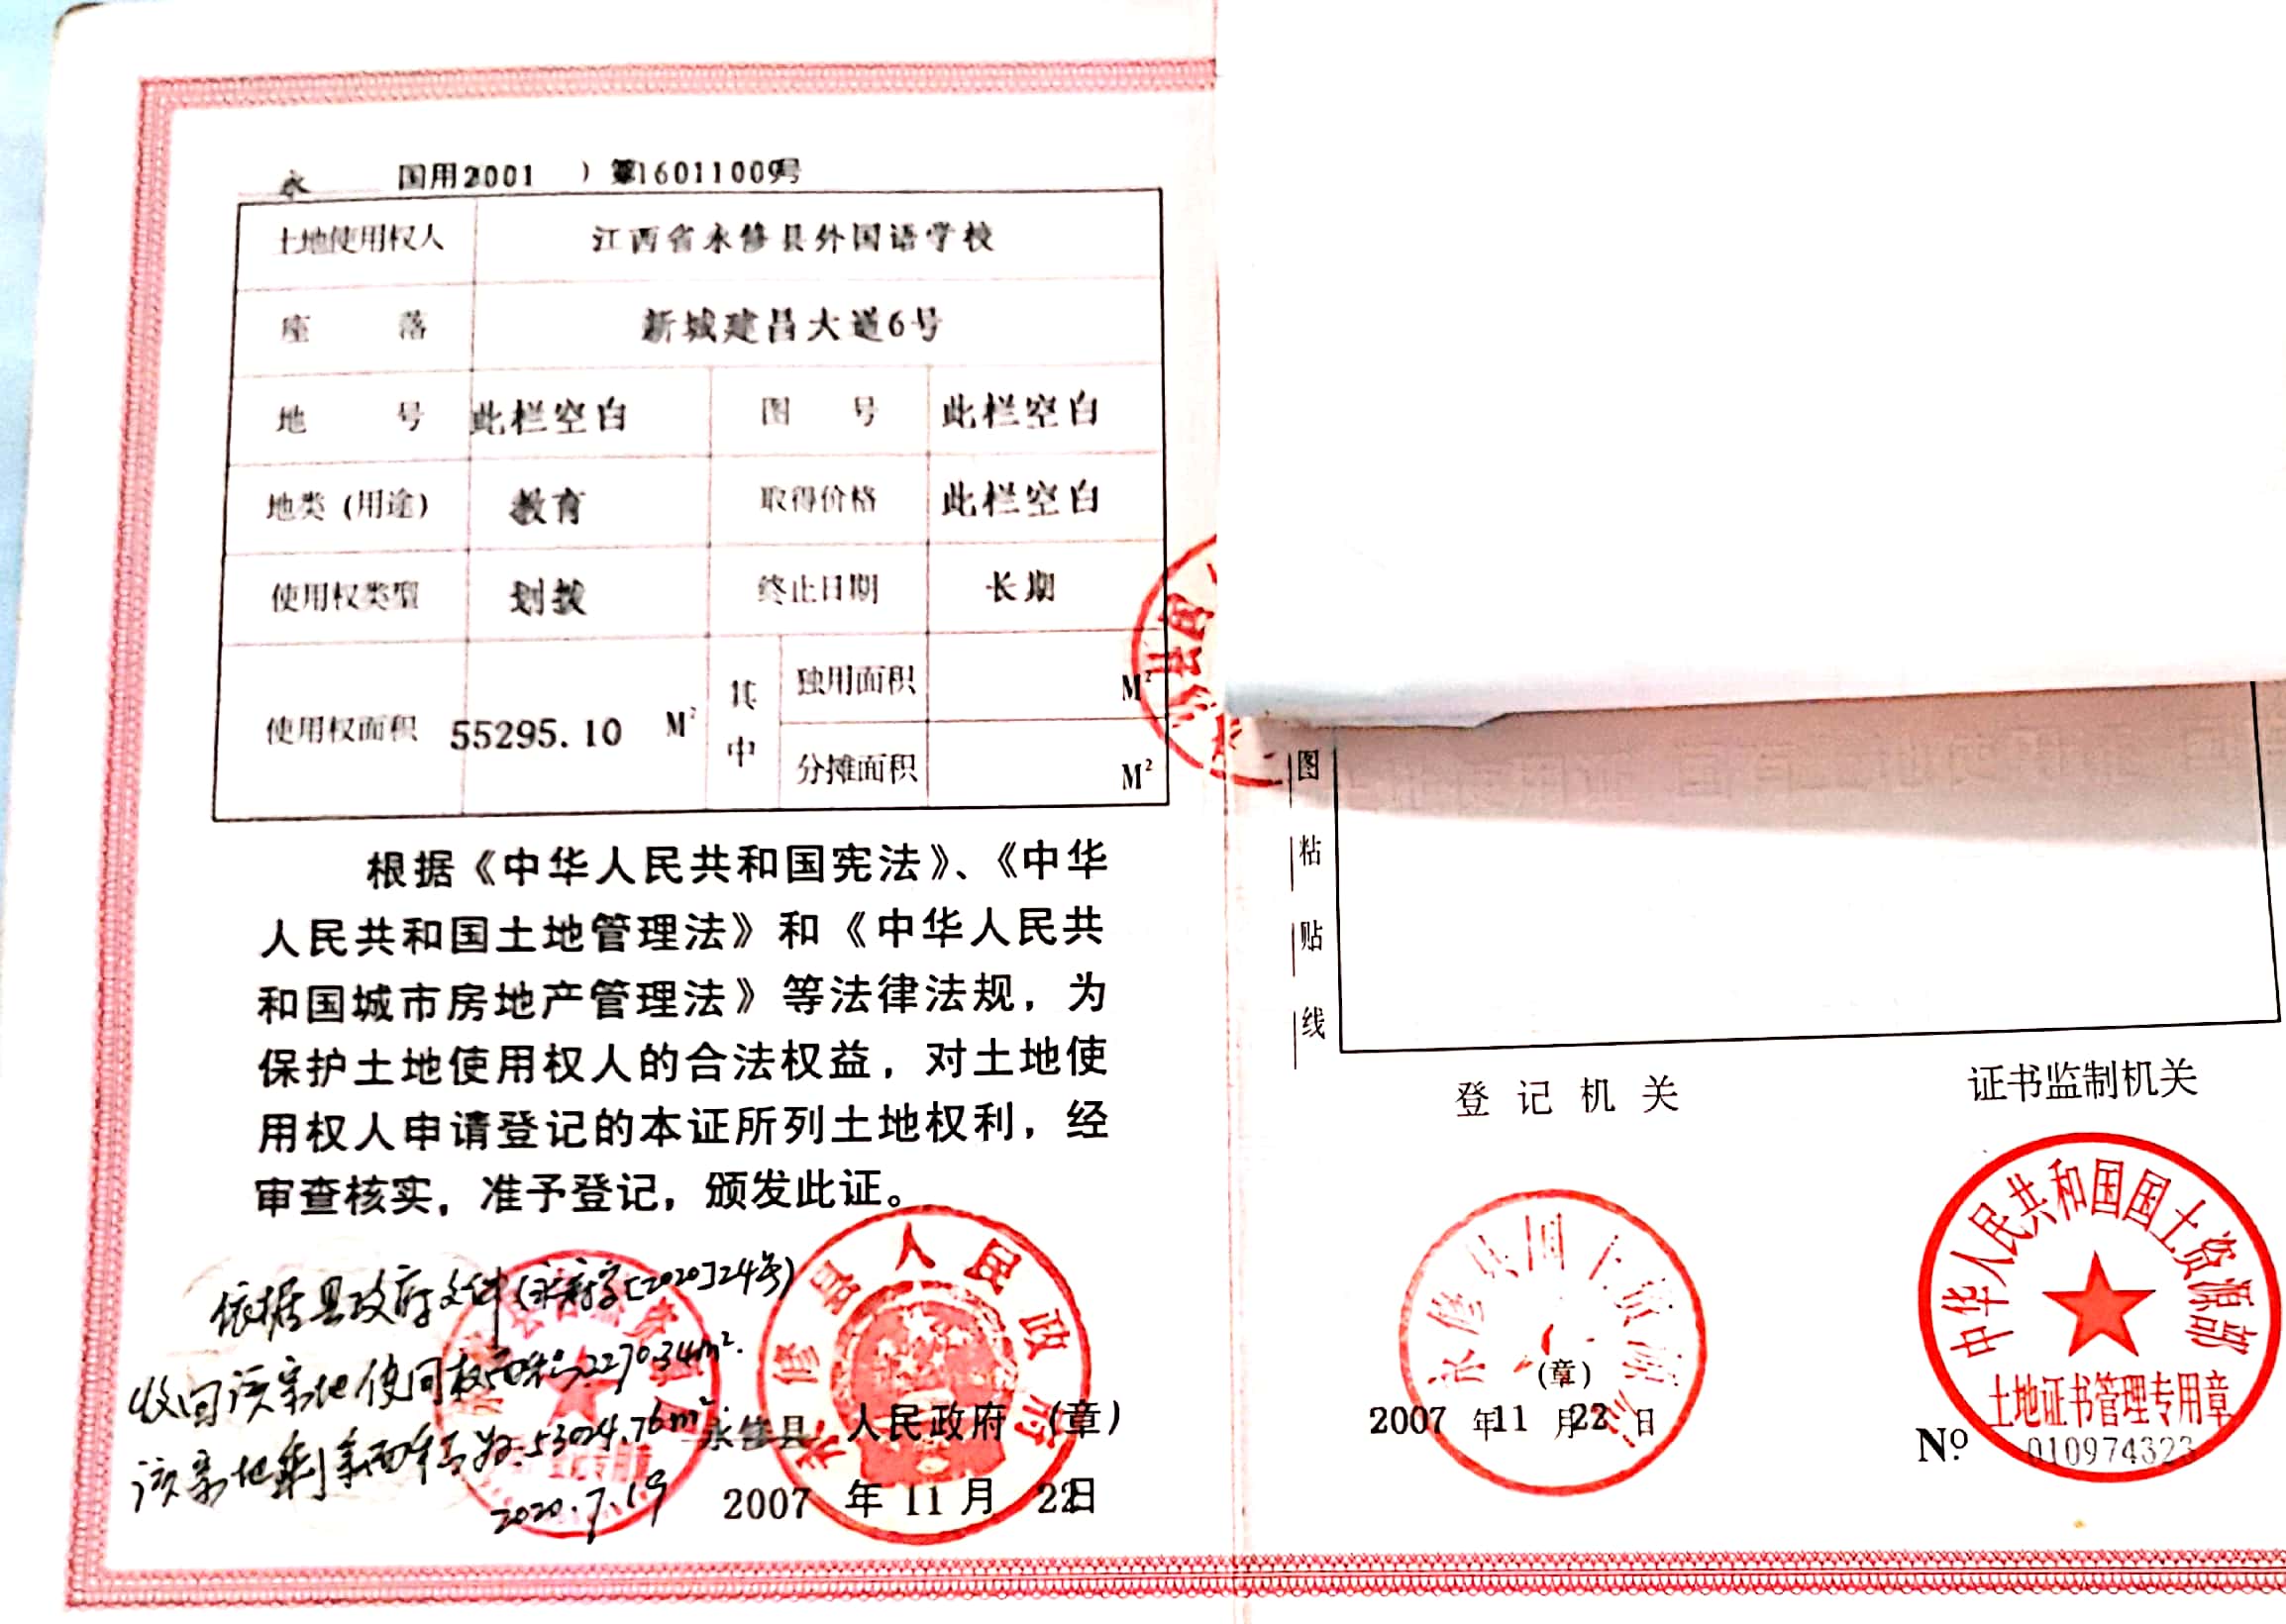 永 国用2001 ）第16011009号
土地使用权人 江西省永修县外国语学校
座 落 新城建昌大道6号
地 号 此栏空白 图 号 此栏空白
地类（用途） 教育 取得价格 此栏空白
使用权类型 划拨 终止日期 长期
使用权面积 55295.10 M² 其中 独用面积 M²
分摊面积 M²
根据《中华人民共和国宪法》、《中华
人民共和国土地管理法》和《中华人民共
和国城市房地产管理法》等法律法规，为
保护土地使用权人的合法权益，对土地使
用权人申请登记的本证所列土地权利，经
审查核实，准予登记，颁发此证。
依据县政府文件(永府字[2020]24号)
收回该宗地使用权面积2270.34m².
该宗地剩余面积为53024.76m².
2020.7.19
永修县人民政府
永修县 人民政府 （章）
2007 年 11 月 22日
图粘贴线
登记机关
永修县国土资源局
（章）
2007 年11 月22 日
证书监制机关
中华人民共和国国土资源部
土地证书管理专用章
Nº 010974323